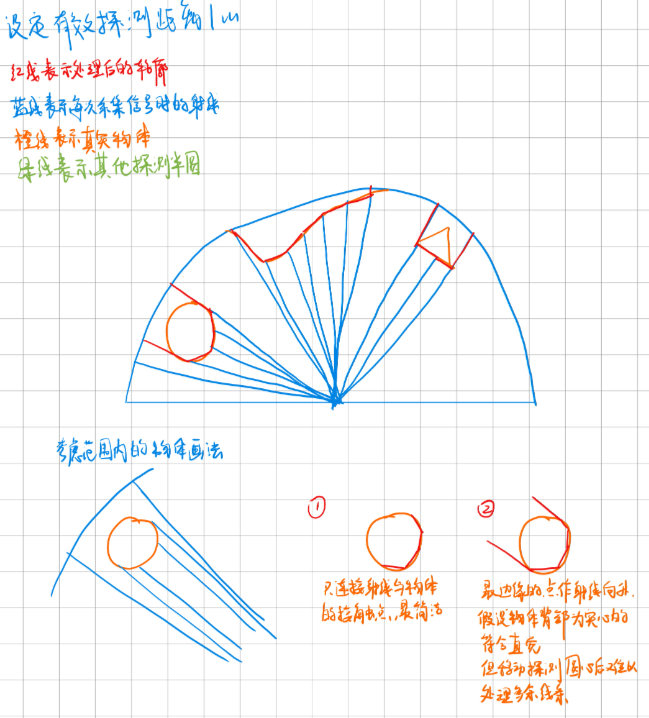 设定有效探测距离1m
红线表示处理后的轮廓
蓝线表示每次采集信号时的射线
橙线表示真实物体
绿线表示其他探测半圆
考虑范围内的物体画法
①
②
只连接射线与物体
的接触点,最简洁
最边缘的点作射线向外,
假设物体背部为实心的
符合直觉
但移动探测圆心后难以
处理多余线条